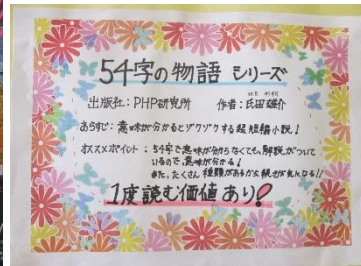 54字の物語 シリーズ
出版社：PHP研究所 作者：氏田雄介
あらすじ：意味が分かるとゾクゾクする超短編小説！
オススメポイント：54字で意味が分からなくても、解説がついて
いるので、意味が分かる！
また、たくさん種類があるから続きが気になる!!
1度読む価値あり!